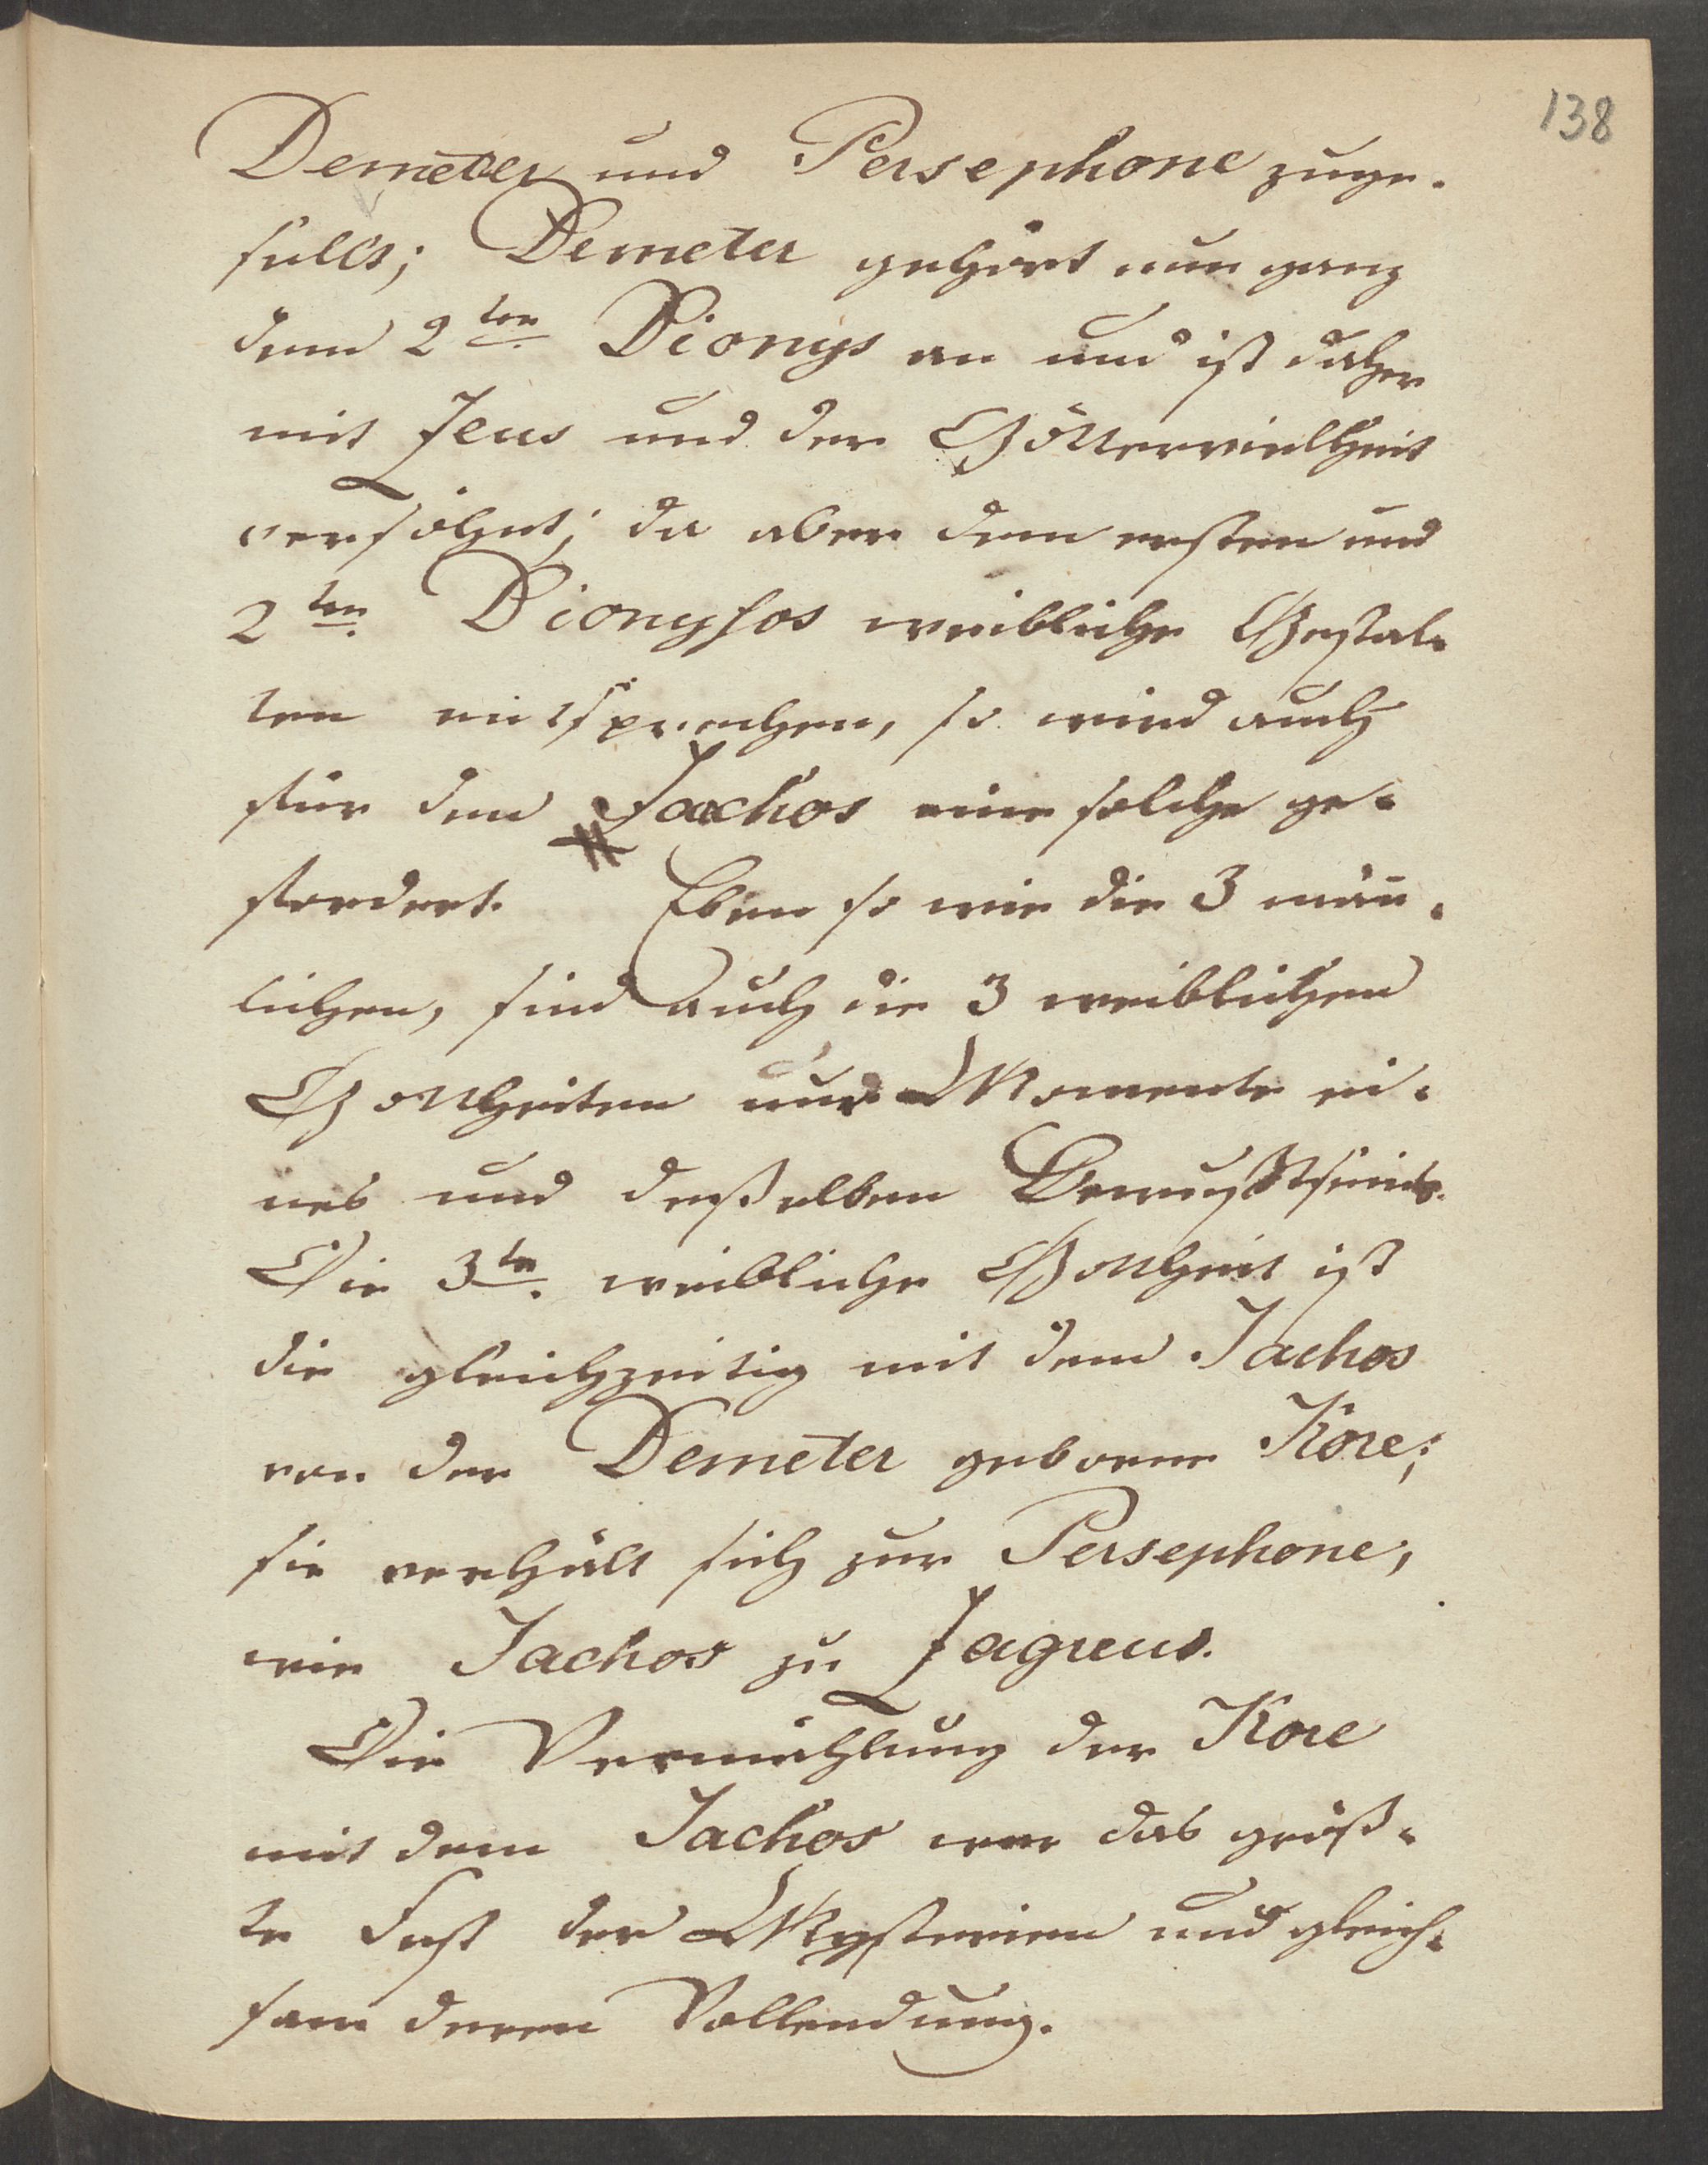 138
Demeter und Persephone zuge-
sellt; Demeter gehört nun ganz
dem 2ten Dionys an und ist daher
mit Zeus und der Göttervielheit
versöhnt; da aber dem ersten und
2ten Dionysos weibliche Gestal-
ten entsprechen, so wird auch
für den Jachos eine solche ge-
fordert. Eben so wie die 3 män-
lichen, sind auch die 3 weiblichen
Gottheiten nur Momente ei-
nes und desselben Bewußtseins.
Die 3te weibliche Gottheit ist
die gleichzeitig mit dem Jachos
von der Demeter geborene Kore;
sie verhält sich zur Persephone,
wie Jachos zu Zagreus.
Die Vermählung der Kore
mit dem Jachos war das größ-
te Fest der Mysterien und gleich-
sam deren Vollendung.